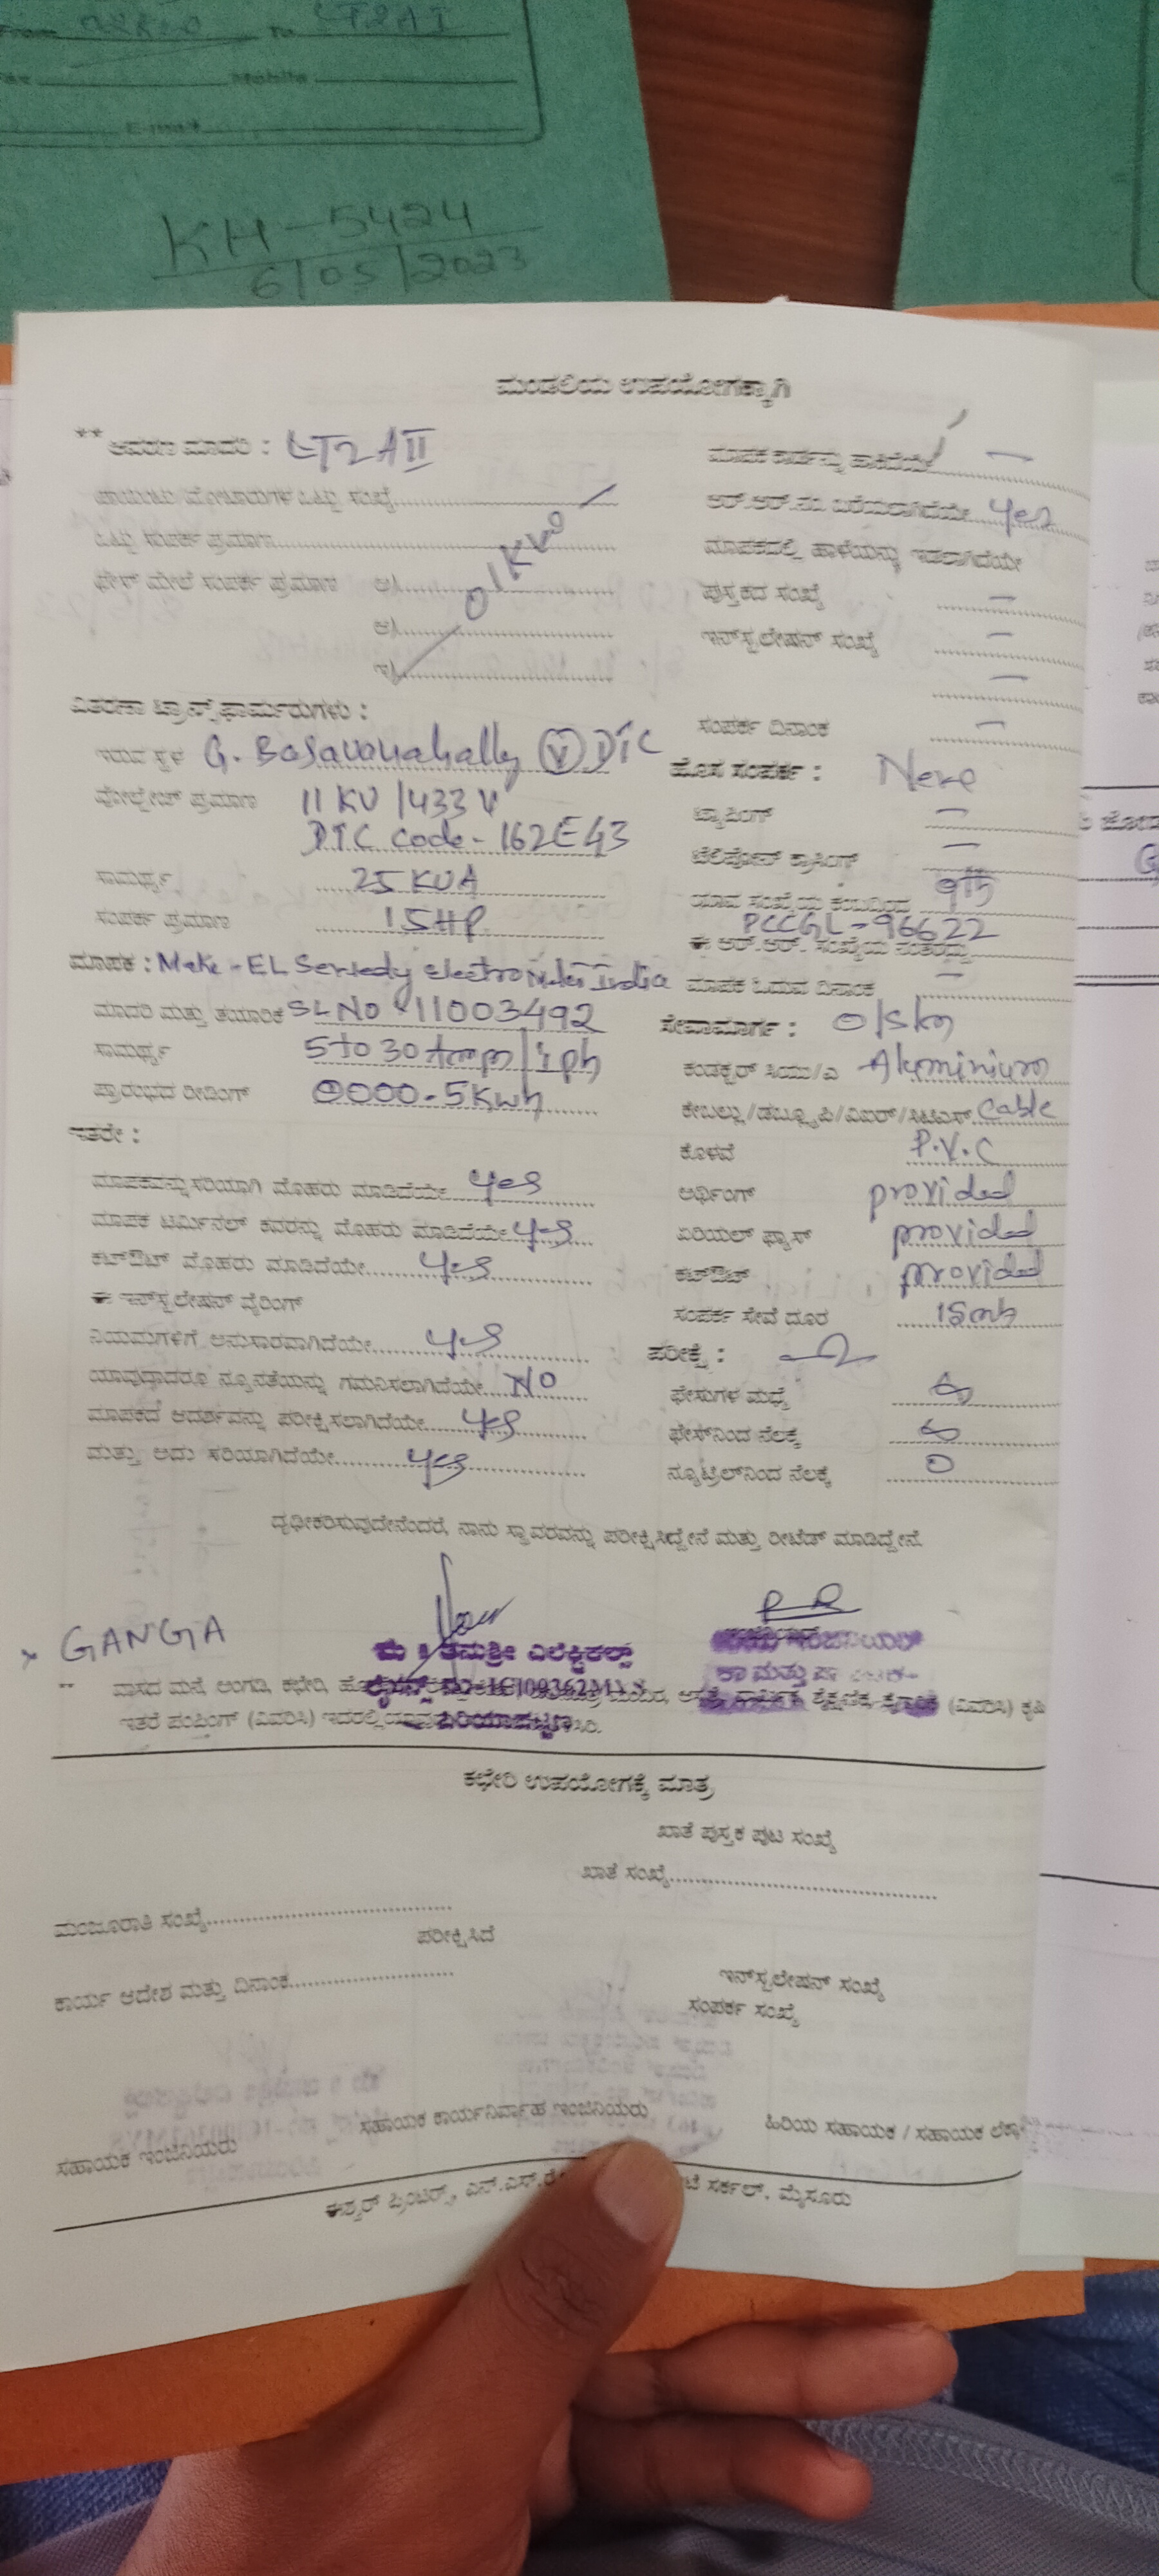 From To LT2AI
Fax Mobile
E-mail
KH-5424
6/05/2023
ಮಂಡಲಿಯ ಉಪಯೋಗಕ್ಕಾಗಿ
** ಆವರಣ ಮಾದರಿ : LT2AII
ಒಟ್ಟು ಸಂಪರ್ಕ ಪ್ರಮಾಣ
ಫೇಸ್ ಮೇಲೆ ಸಂಪರ್ಕ ಪ್ರಮಾಣ ಅ)
ಆ)
ಇ)
ವಿತರಣಾ ಟ್ರಾನ್ಸ್‌ಫಾರ್ಮರುಗಳು :
ಇರುವ ಸ್ಥಳ G. Basavanahally (V) DTC
ವೋಲ್ಟೇಜ್ ಪ್ರಮಾಣ 11 KV /433 V
DTC Code - 162E43
ಸಾಮರ್ಥ್ಯ 25 KVA
ಸಂಪರ್ಕ ಪ್ರಮಾಣ 15HP
ಮಾಪಕ : Make - EL
ಮಾದರಿ ಮತ್ತು ತಯಾರಿಕೆ SL NO 11003492
ಸಾಮರ್ಥ್ಯ 5 to 30 Amp / 1 ph
ಪ್ರಾರಂಭದ ರೀಡಿಂಗ್ 0000-5 Kwh
ಇತರೇ :
ಮಾಪಕವನ್ನು ಸರಿಯಾಗಿ ಮೊಹರು ಮಾಡಿದೆಯೇ yes
ಮಾಪಕ ಟರ್ಮಿನಲ್ ಕವರನ್ನು ಮೊಹರು ಮಾಡಿದೆಯೇ yes
ಕಟ್‌ಔಟ್ ಮೊಹರು ಮಾಡಿದೆಯೇ yes
ಈ ಇನ್‌ಸ್ಟಲೇಷನ್ ವೈರಿಂಗ್
ನಿಯಮಗಳಿಗೆ ಅನುಸಾರವಾಗಿದೆಯೇ yes
ಯಾವುದಾದರೂ ನ್ಯೂನತೆಯನ್ನು ಗಮನಿಸಲಾಗಿದೆಯೇ NO
ಮಾಪಕದ ಆದರ್ಶವನ್ನು ಪರೀಕ್ಷಿಸಲಾಗಿದೆಯೇ yes
ಮತ್ತು ಅದು ಸರಿಯಾಗಿದೆಯೇ yes
ಮಾಪಕ ಕಾರ್ಡನ್ನು ಹಾಕಿದೆಯೇ —
ಆರ್.ಆರ್.ನಂ. ಬರೆಯಲಾಗಿದೆಯೇ yes
ಮಾಪಕದಲ್ಲಿ ಹಾಳೆಯನ್ನು ಇಡಲಾಗಿದೆಯೇ
ಪುಸ್ತಕದ ಸಂಖ್ಯೆ —
ಇನ್‌ಸ್ಟಲೇಷನ್ ಸಂಖ್ಯೆ —
—
ಸಂಪರ್ಕ ದಿನಾಂಕ —
ಹೊಸ ಸಂಪರ್ಕ : New
ಟ್ಯಾಪಿಂಗ್ —
ಟೆಲಿಫೋನ್ ಕ್ರಾಸಿಂಗ್ —
ಯಾವ ಸಂಖ್ಯೆಯ ಕಂಬದಿಂದ
PCCGL-96622
ಈ ಆರ್.ಆರ್. ಸಂಖ್ಯೆಯ ನಂತರದ್ದು
ಮಾಪಕ ಓದುವ ದಿನಾಂಕ —
ಸೇವಾಮಾರ್ಗ :
ಕಂಡಕ್ಟರ್ ಸಿಯು/ಎ Aluminium
ಕೇಬಲ್ಲು/ಡಬ್ಲ್ಯೂಪಿ/ವಿಐಆರ್/ಸಿಟಿಎಸ್ Cable
ಕೊಳವೆ P.V.C
ಅರ್ಥಿಂಗ್ provided
ಏರಿಯಲ್ ಫ್ಯೂಸ್ provided
ಕಟ್‌ಔಟ್ provided
ಸಂಪರ್ಕ ಸೇವೆ ದೂರ 15m
ಪರೀಕ್ಷೆ :
ಫೇಸುಗಳ ಮಧ್ಯೆ
ಫೇಸ್‌ನಿಂದ ನೆಲಕ್ಕೆ
ನ್ಯೂಟ್ರಲ್‌ನಿಂದ ನೆಲಕ್ಕೆ 0
ದೃಢೀಕರಿಸುವುದೇನೆಂದರೆ, ನಾನು ಸ್ಥಾವರವನ್ನು ಪರೀಕ್ಷಿಸಿದ್ದೇನೆ ಮತ್ತು ರೀಟೆಡ್ ಮಾಡಿದ್ದೇನೆ.
x GANGA
ಪಿರಿಯಾಪಟ್ಟಣ
** ವಾಸದ ಮನೆ, ಅಂಗಡಿ, ಕಛೇರಿ, (ವಿವರಿಸಿ) ಕೃಷಿ
ಇತರೆ ಪಂಪಿಂಗ್ (ವಿವರಿಸಿ)
ಕಛೇರಿ ಉಪಯೋಗಕ್ಕೆ ಮಾತ್ರ
ಖಾತೆ ಪುಸ್ತಕ ಪುಟ ಸಂಖ್ಯೆ
ಖಾತೆ ಸಂಖ್ಯೆ
ಮಂಜೂರಾತಿ ಸಂಖ್ಯೆ
ಪರೀಕ್ಷಿಸಿದೆ
ಕಾರ್ಯ ಆದೇಶ ಮತ್ತು ದಿನಾಂಕ
ಇನ್‌ಸ್ಟಲೇಷನ್ ಸಂಖ್ಯೆ
ಸಂಪರ್ಕ ಸಂಖ್ಯೆ
ಸಹಾಯಕ ಇಂಜಿನಿಯರು ಸಹಾಯಕ ಕಾರ್ಯನಿರ್ವಾಹ ಇಂಜಿನಿಯರು ಹಿರಿಯ ಸಹಾಯಕ / ಸಹಾಯಕ
ಈಶ್ವರ್ ಪ್ರಿಂಟರ್ಸ್, ಎನ್.ಎಸ್. ಸರ್ಕಲ್, ಮೈಸೂರು